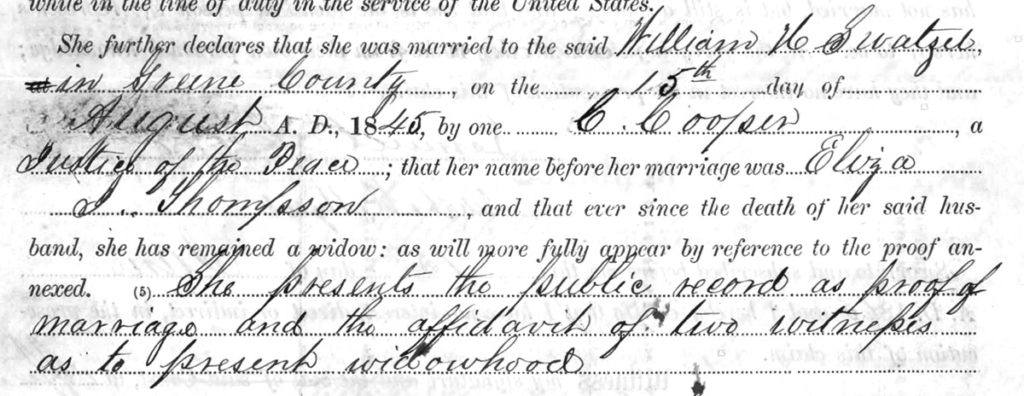 while in the line of duty in the service of the United States.
She further declares that she was married to the said William H Swatzel,
in Greene County, on the 15th day of
August A. D., 1845, by one C. Cooper, a
Justice of the Peace; that her name before her marriage was Eliza
J. Thompson, and that ever since the death of her said hus-
band, she has remained a widow: as will more fully appear by reference to the proof an-
nexed. (5) She presents the public record as proof of
marriage and the affidavit of two witnesses
as to present widowhood